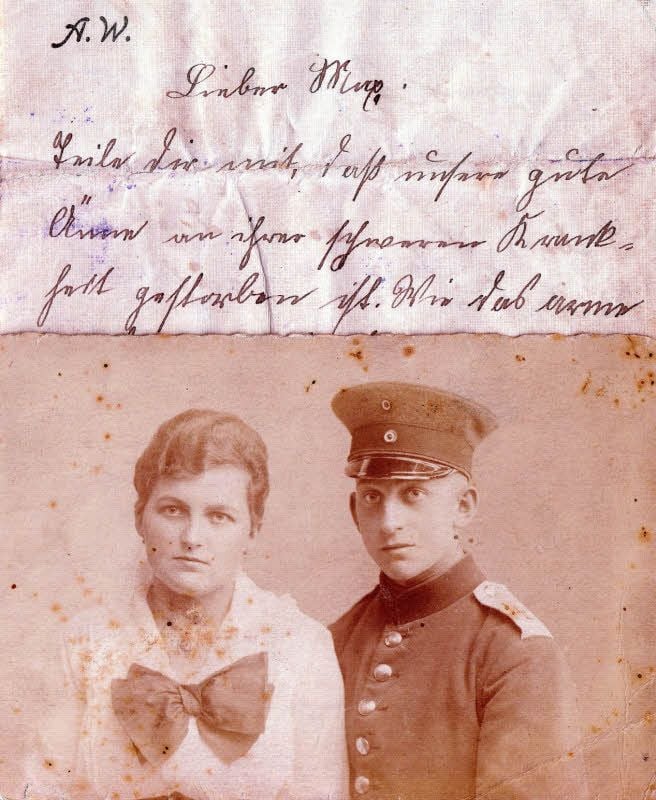 A. W.
Lieber Max.
Teile dir mit, daß unsere gute
Änne an ihrer schweren Krank-
heit gestorben ist. Wie das arme